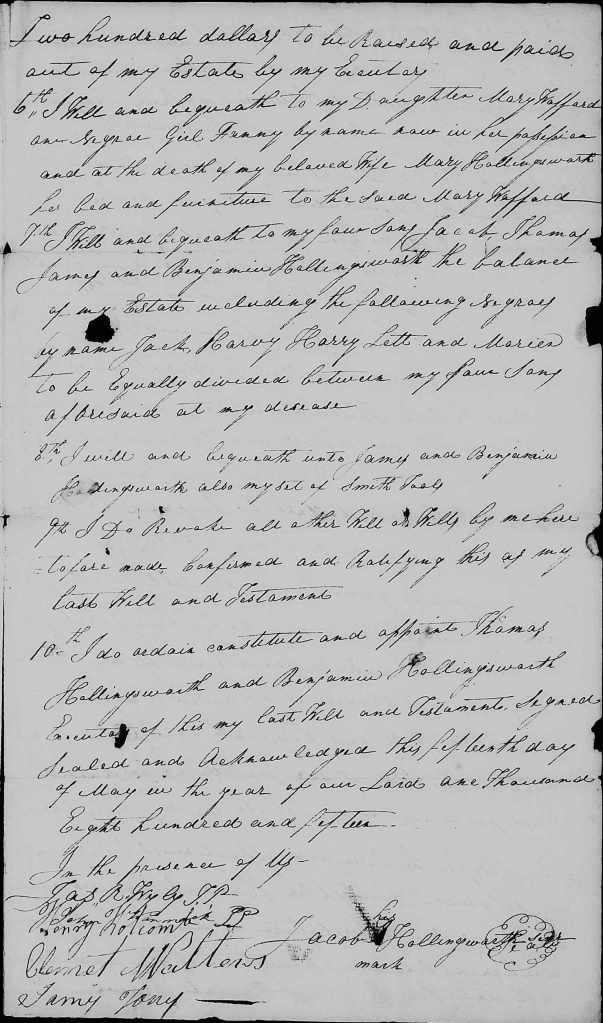 Two hundred dollars to be Raised and paid
out of my Estate by my Executors
6th I Will and bequeath to my Daughter Mary Wafford
one Negroe Girl Fanny by name now in her possession
and at the death of my beloved Wife Mary Hollingsworth
her bed and furniture to the said Mary Wafford
7th I Will and bequeath to my four Sons Jacob Thomas
James and Benjamin Hollingsworth the balance
of my Estate including the following Negroes
by name Jack, Harvy Harry Lett and Marien
to be Equally divided between my four Sons
aforesaid at my disease
8th I will and bequeath unto James and Benjamin
Hollingsworth also my set of Smith Tools
9th I Do Revoke all other Will or Wills by me here
tofore made, Confirmed and Ratifying this as my
last Will and Testament
10th I do ordain constitute and appoint Thomas
Hollingsworth and Benjamin Hollingsworth
Executors of this my last Will and Testament. Signed
Sealed and Acknowledged this fifteenth day
of May in the year of our Lord one Thousand
Eight hundred and fifteen.
In the presence of Us
Jas. R. Wyly J.P.
Henry Holcomb JP
his
Jacob Hollingsworth Seal
mark
Clemet Walters
James